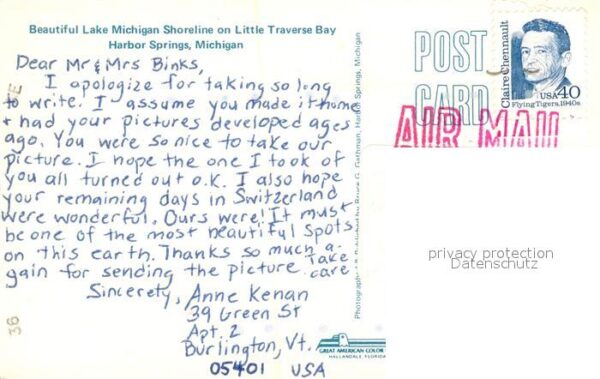 Beautiful Lake Michigan Shoreline on Little Traverse Bay
Harbor Springs, Michigan
Dear Mr & Mrs Binks,
I apologize for taking so long
to write. I assume you made it home
+ had your pictures developed ages
ago. You were so nice to take our
picture. I hope the one I took of
you all turned out o.k. I also hope
your remaining days in Switzerland
were wonderful. Ours were! It must
be one of the most beautiful spots
on this earth. Thanks so much a-
gain for sending the picture. Take
care
Sincerely, Anne Kenan
39 Green St
Apt. 2
Burlington, Vt.
05401 USA
36
GREAT AMERICAN COLOR
HALLANDALE FLORIDA
Published by Bruce G. Gathman, Harbor Springs, Michigan
POST
CARD
AIR MAIL
Claire Chennault
USA 40
Flying Tigers, 1940s
privacy protection
Datenschutz